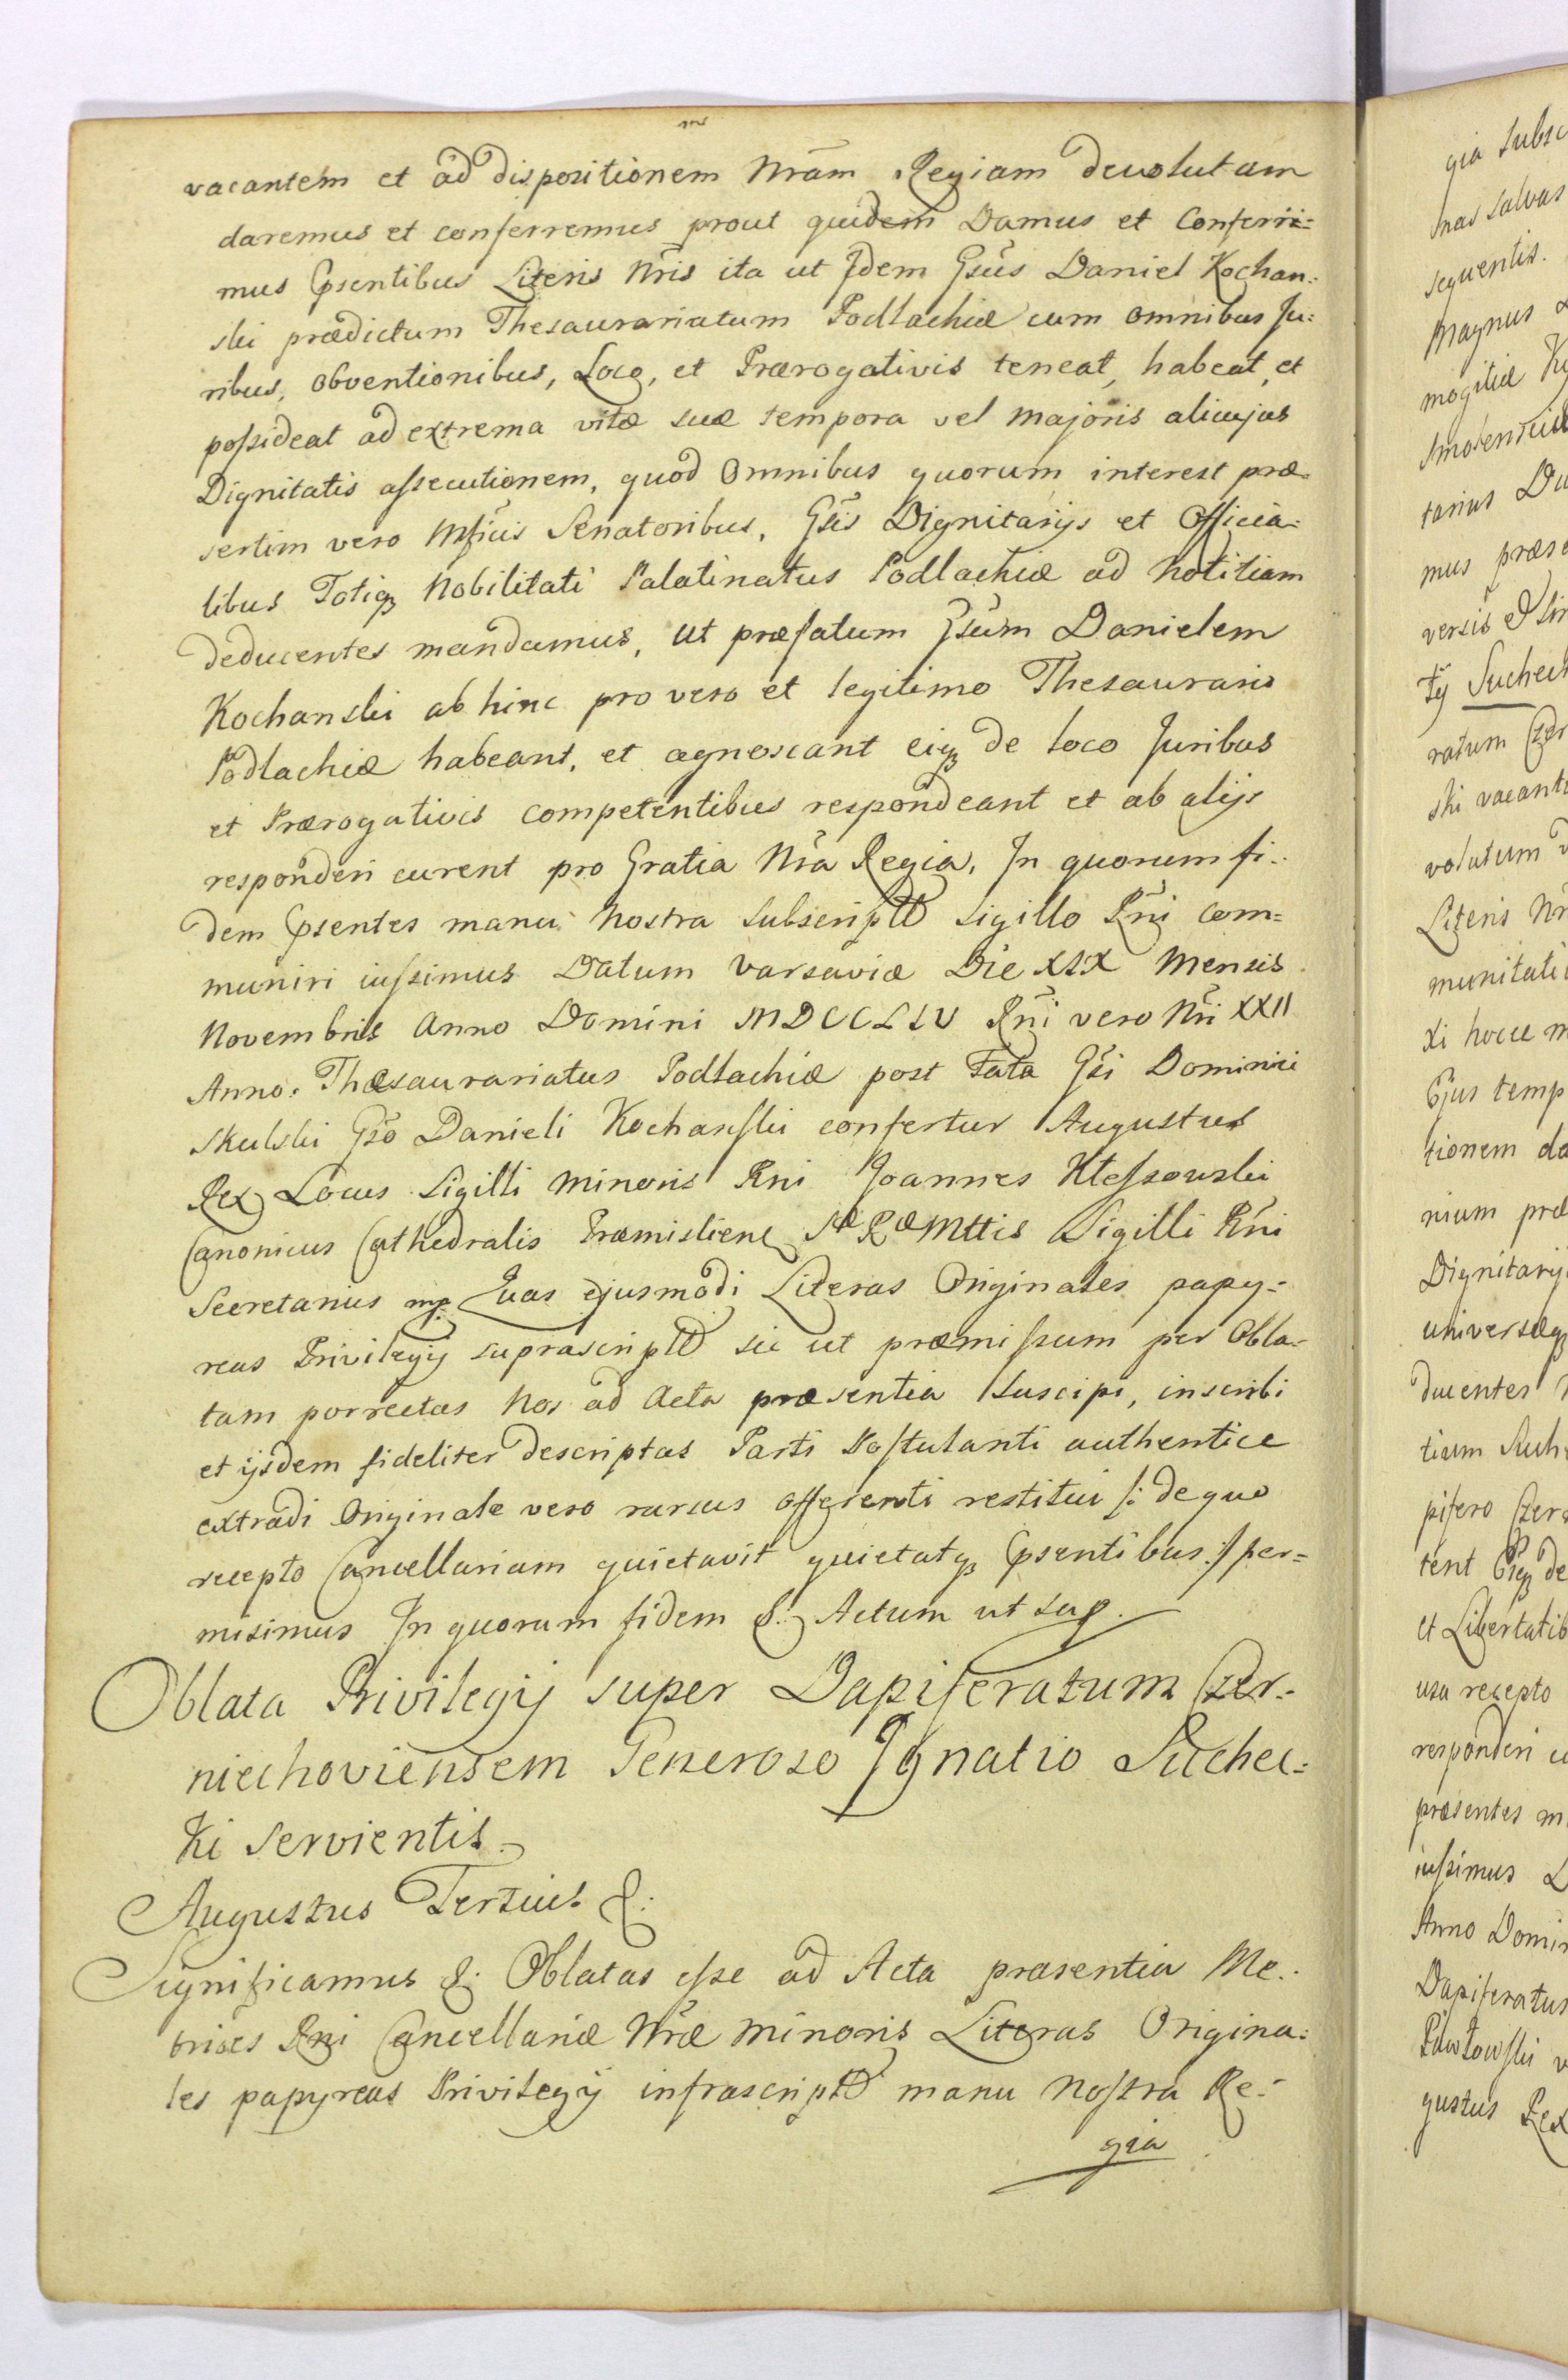 vacantem et ad dispositionem Nrãm Regiam devolutam
daremus et conferremus prout quidem Damus et Conferri=
mus Epsentibus Literis Nr̃is ita ut Jdem Gsũs Daniel Kochan:
ski prædictum Thesaurariatum Podlachiæ cum omnibus Ju:
ribus, obventionibus, Loco, et Prærogativis teneat, habeat, et
possideat ad extrema vitæ suæ tempora vel majoris alicujus
Dignitatis assecutionem, quod Omnibus quorum interest præ-
sertim vero Mfi͂cis Senatoribus, Gs̃is Dignitarijs et Officia:
libus Totiq̃ Nobilitati Palatinatus Podlachiæ ad Notitiam
deducentes mandamus, ut præfatum Gsũm Danielem
Kochanski ab hinc pro vero et legitimo Thesaurario
Podlachiæ habeant, et agnoscant eiq̃ de loco Juribus
et Prærogativis competentibus respondeant et ab alijs
responderi curent pro Gratia Nr̃a Regia, Jn quorum fi:
dem Epsentes manu Nostra subscriptt Sigillo Rñi com=
muniri iussimus Datum Varsaviæ Die XIX Mensis
Novembris Anno Domini MDCCLIV Rñi vero Nr̃i XXII
Anno. Thæsaurariatus Podlachiæ post Fata Gs̃i Dominici
Skulski Gs̃o Danieli Kochanski confertur Augustus
Rex Locus Sigilli minoris Rni Joannes Klessowski
Canonicus Cathedralis Præmislien̄ Sæ Ræ Mttis Sigilli Rñi
Secretarius mp. Quas ejusmodi Literas Originales papy=
reas Privilegij suprascriptt sic ut præmissum per Obla-
tam porrectas Nos ad Acta præsentia Suscipi, inscribi
et ijsdem fideliter descriptas Parti Postulanti authentice
extradi Originale vero rursus offerenti restitui /: de quo
recepto Cancellariam quietavit quietatq̃ Epsentibus :/ per=
misimus Jn quorum fidem &: Actum ut sup.
Oblata Privilegij super Dapiferatum Czer=
niechoviensem Generoso Jgnatio Suchec=
ki servientis.
Augustus Tertius &:
Significamus &: Oblatas esse ad Acta præsentia Me:
trices Rni Cancellariæ Nr̃æ minoris Literas Origina:
les papyreas Privilegij infrascriptt manu Nostra Re=
gia
gia subsc
nas salvas
sequentis.
Magnus
mogitiæ
tarius Du
mus præs
tij Suchec
ratum Czer
ski vacant
volutum
Literis Nr
munitati
xi hocce m
Ejus temp
tionem da
nium præ
Dignitarij
universæq̃
ducentes
pifero Czer
tent Eiq̃ de
et Libertatib
usu recepto
responderi cu
præsentes m
iussimus
Anno Domi
Dapiferatus
Pawłowski v
gustus Rex